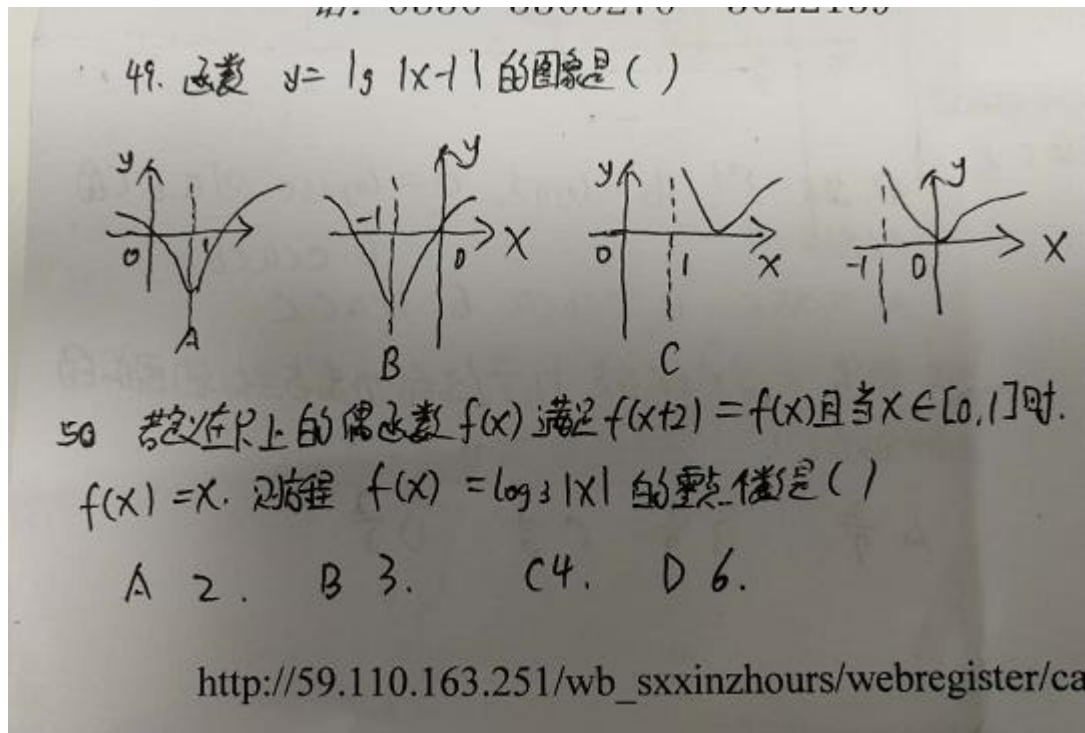 49. 函数 y= lg |x-1| 的图象是( )
y y y y
-1
0 1 0 X 0 1 X -1 0 X
A B C
50 若定义在R上的偶函数f(x)满足f(x+2)=f(x)且当x∈[0,1]时.
f(x)=x. 则方程 f(x)=log3|x| 的零点个数是( )
A 2. B 3. C 4. D 6.
http://59.110.163.251/wb_sxxinzhours/webregister/ca